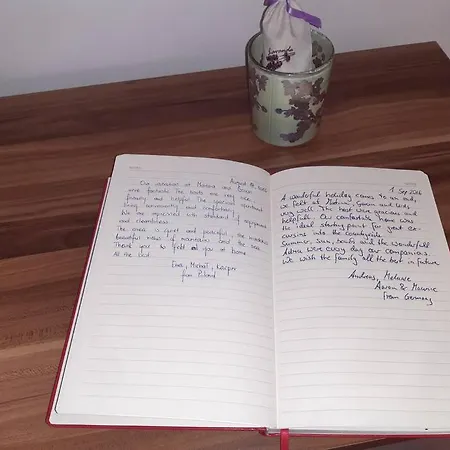 Lavanda
August
Our vacation at Mattina and Goran
were fantastic. The hosts are very nice,
friendly and helpful. The spacious apartment
very
comfortable.
We are impressed with standard of equipment
and cleanliness.
The area is quiet and peaceful, the
beautiful views of mountains and the sea.
Thank you to feel at home
All the best
Michał, Kacper
from Poland
1 Sep 2024
A wonderful holiday comes to an end,
we felt at Goran and kids
very well. The host were gracious and
helpful. Our comfortable home was
the ideal starting point for great ex-
cursions into the countryside.
Summer, sun, and the wonderful
Adria were every day our companions.
We wish the family all the best in future
Andreas, Melanie
Aaron & Maurice
from Germany